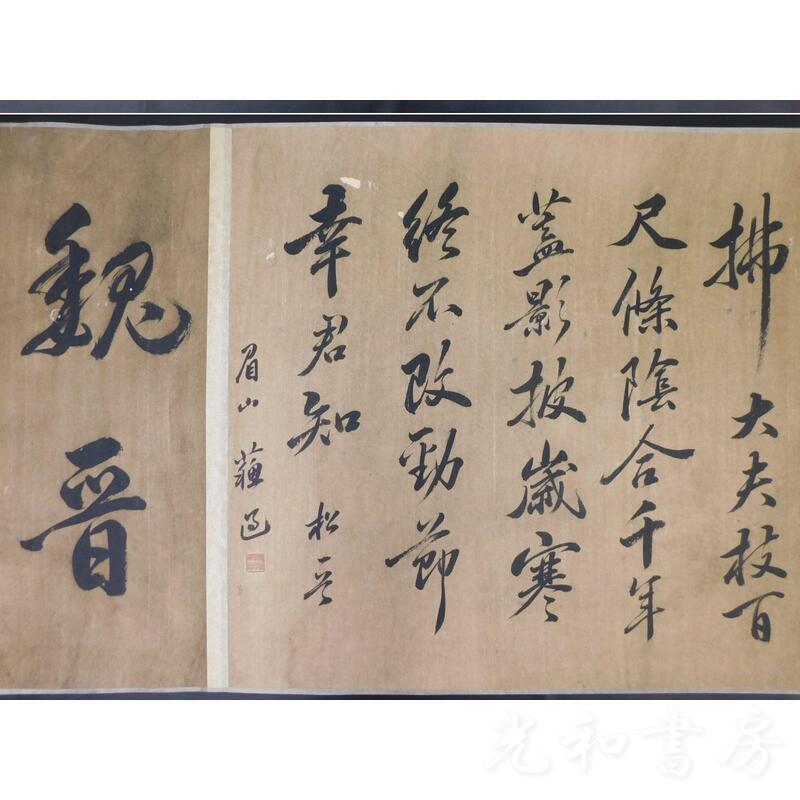 拂大夫枝百
尺條陰合千年
蓋影披歲寒
終不改勁節
幸君知 松
眉山 蘇過
魏晉
光和書房